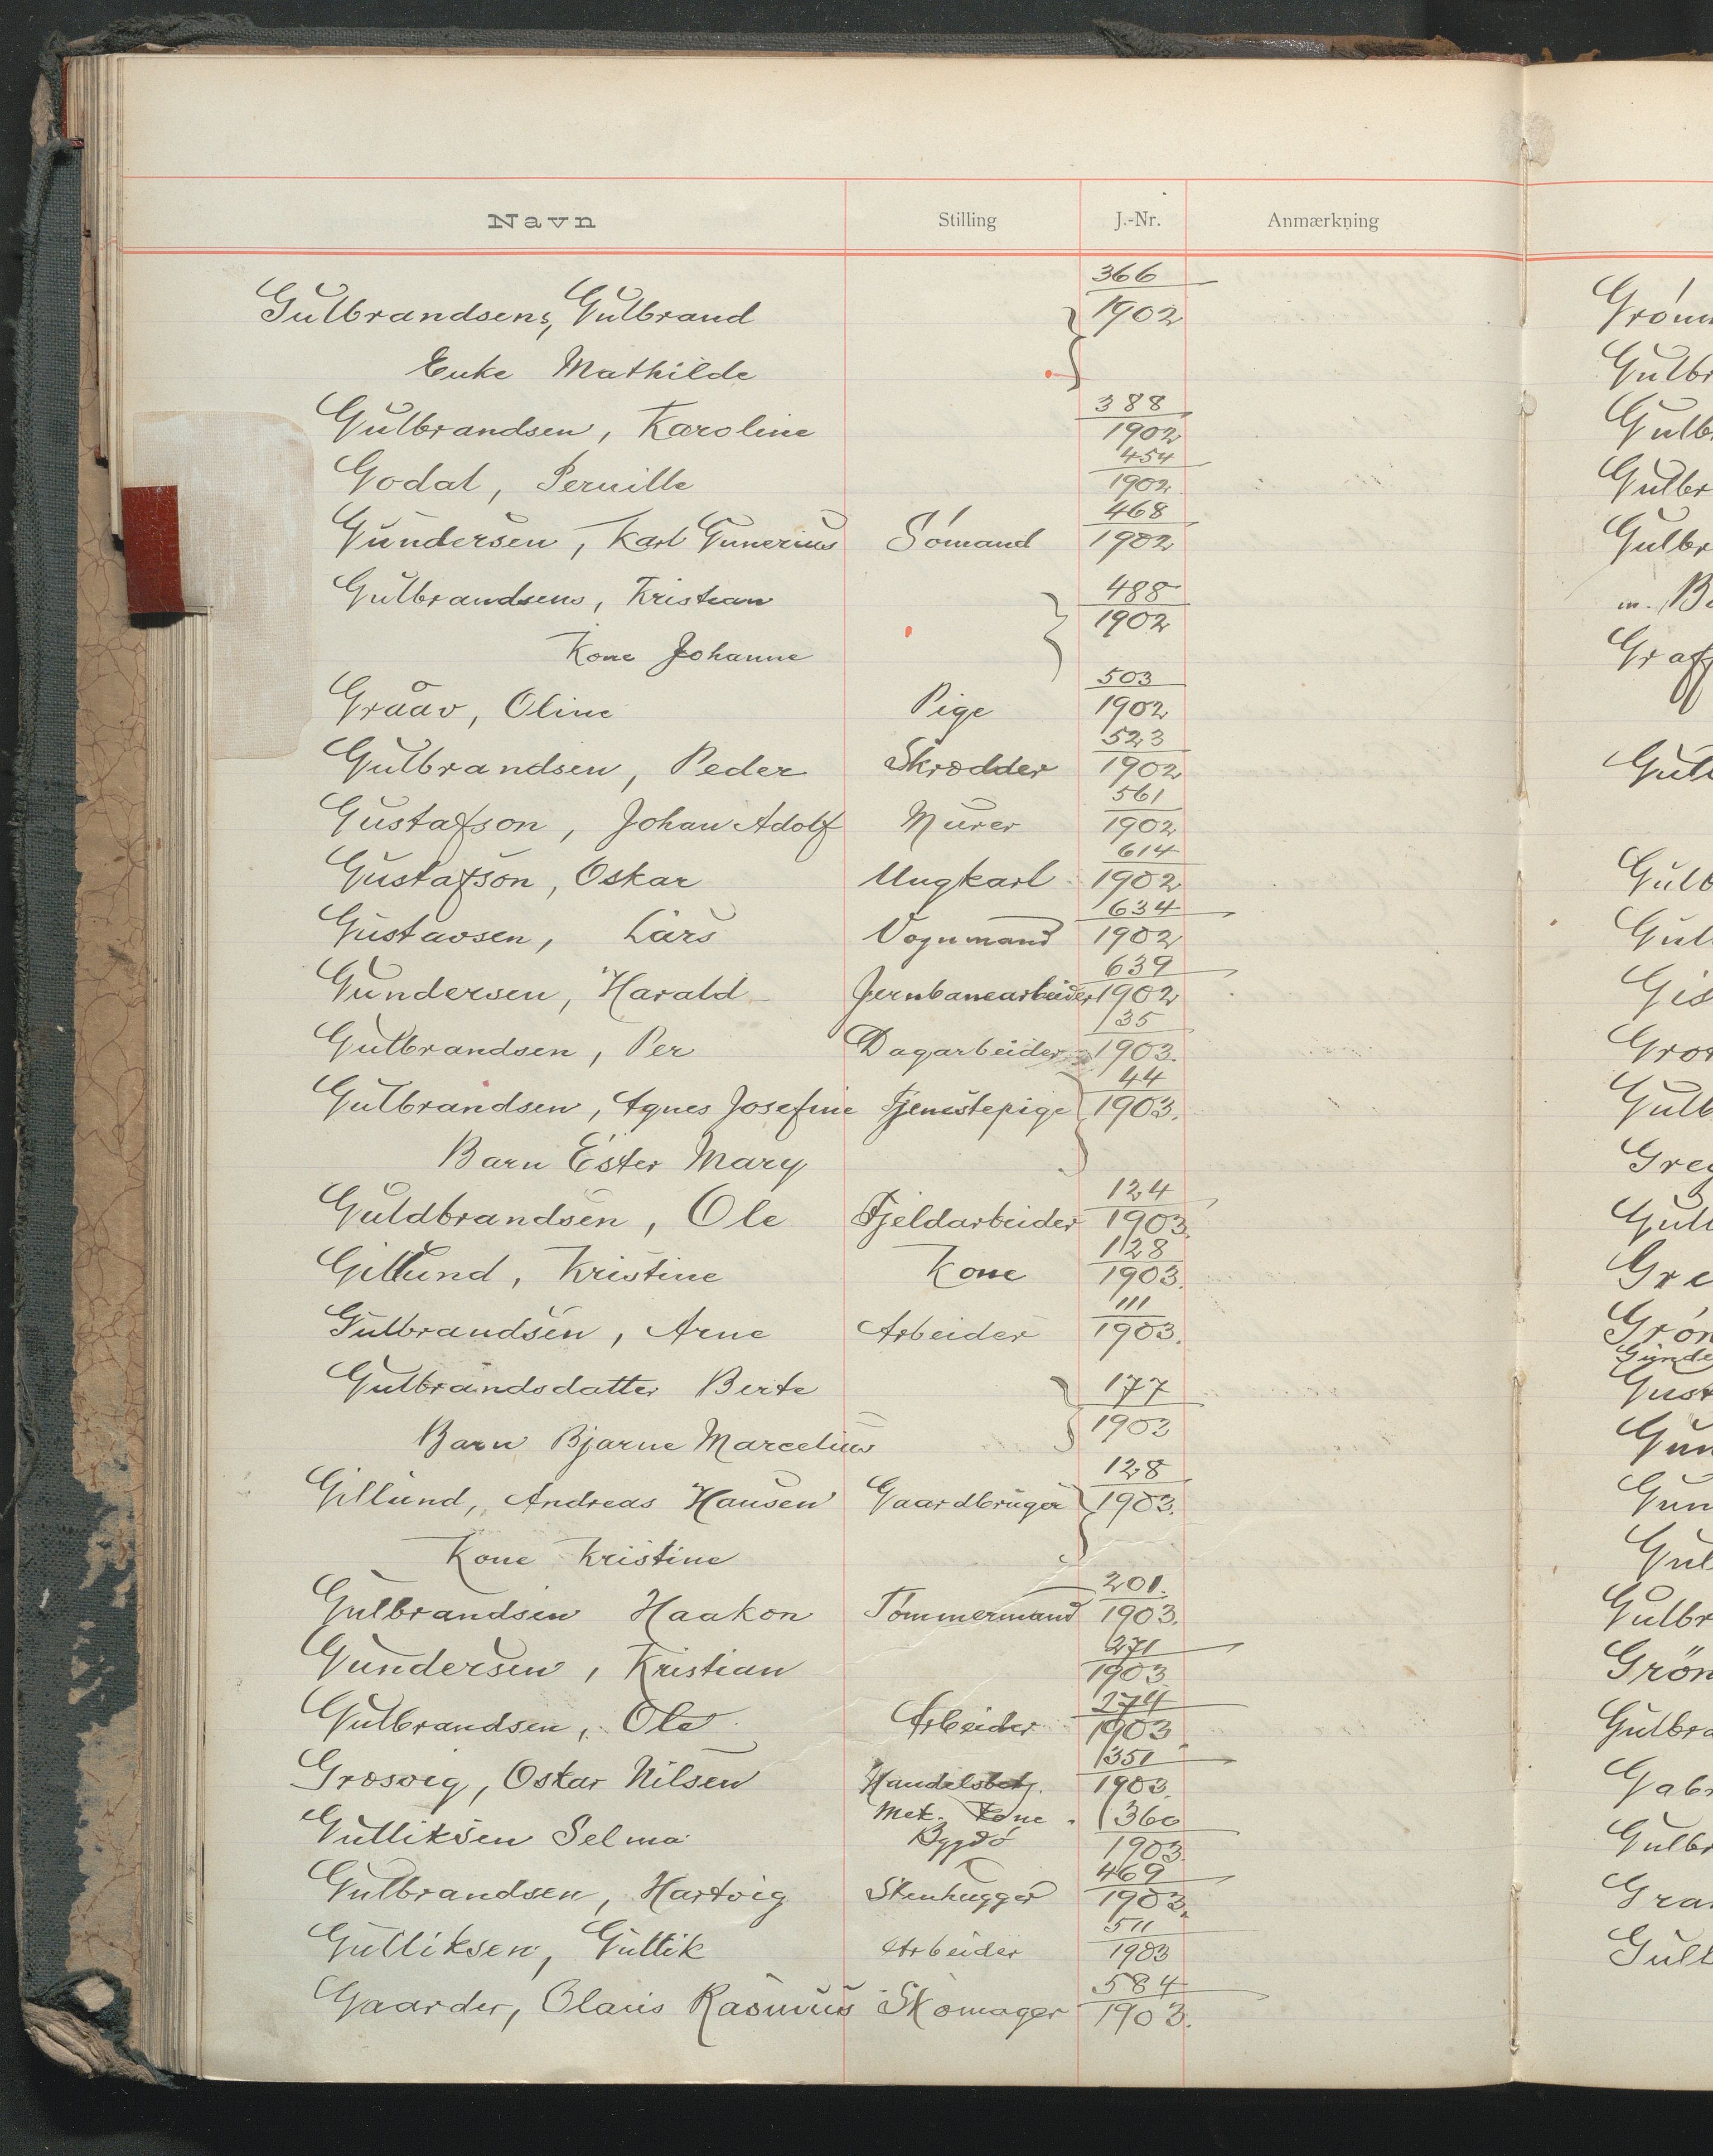 Navn Stilling J.-Nr. Anmærkning
366
Gulbrandsens, Gulbrand 1902
Enke Mathilde
388
Gulbrandsen, Karoline 1902
454
Godal, Pernille 1902
468
Gundersen, Karl Gunerius Sømand 1902
488
Gulbrandsens, Kristian 1902
Kone Johanne
503
Graav, Oline Pige 1902
523
Gulbrandsen, Peder Skrædder 1902
561
Gustafson, Johan Adolf Murer 1902
614
Gustafson, Oskar Ungkarl 1902
634
Gustavsen, Lars Vognmand 1902
639
Gundersen, Harald Jernbanearbeider 1902
35
Gulbrandsen, Per Dagarbeider 1903.
44
Gulbrandsen, Agnes Josefine Tjenestepige 1903.
Barn Ester Mary
124
Guldbrandsen, Ole Fjeldarbeider 1903.
128
Gillund, Kristine Kone 1903.
111
Gulbrandsen, Arne Arbeider 1903.
Gulbrandsdatter Berte 177
1903
Barn Bjarne Marcelius
128
Gillund, Andreas Hansen Gaardbruger 1903.
Kone Kristine
201.
Gulbrandsen Haakon Tømmermand 1903.
271
Gundersen, Kristian 1903
274
Gulbrandsen, Ole Arbeider 1903
351
Grosvig, Oskar Nilsen Handelsbetj. 1903.
Mek. Kone 360
Gulliksen Selma Bygdø 1903.
469
Gulbrandsen, Hartvig Stenhugger 1903.
511
Gulliksen, Gullik Arbeider 1903
584
Gaarder, Olaus Rasmus Skomager 1903.
Grøn
Gulbr
Gulb
Gulbr
Gulbr
m. B
Graff
Gul
Gulb
Gul
Gis
Gro
Gulb
Greg
Gul
Gre
Grøn
Gunde
Gust
Gun
Gun
Gul
Gulbr
Grøn
Gulbra
Gab
Gulbr
Gra
Gull